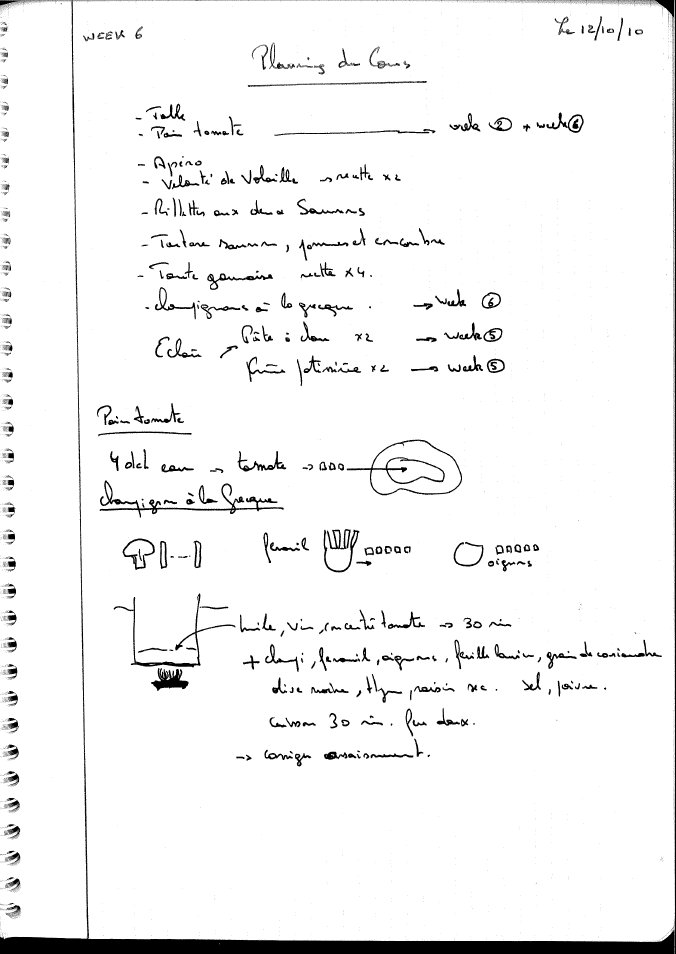 WEEK 6
Le 12/10/10
Planning du Cours
- Table
- Pain tomate → week ② + week ⑥
- Apéro
- Velouté de Volaille → recette x2
- Rillettes aux deux Saumons
- Tartare saumon, pommes et concombre
- recette x4.
- champignons à la grecque. → week ⑥
Eclair ↗ Pâte à chou x2 → week ⑤
Crème patissière x2 → week ⑤
Pain tomate
eau → tomate →
champignon à la Grecque
fenouil
oignons
huile, vin, concentré tomate → 30 min
+ champi, fenouil, oignons, feuille laurier, grain de coriandre
olive noire, thym, raisin sec. Sel, poivre.
cuisson 30 min. feu doux.
→ corriger assaisonnement.